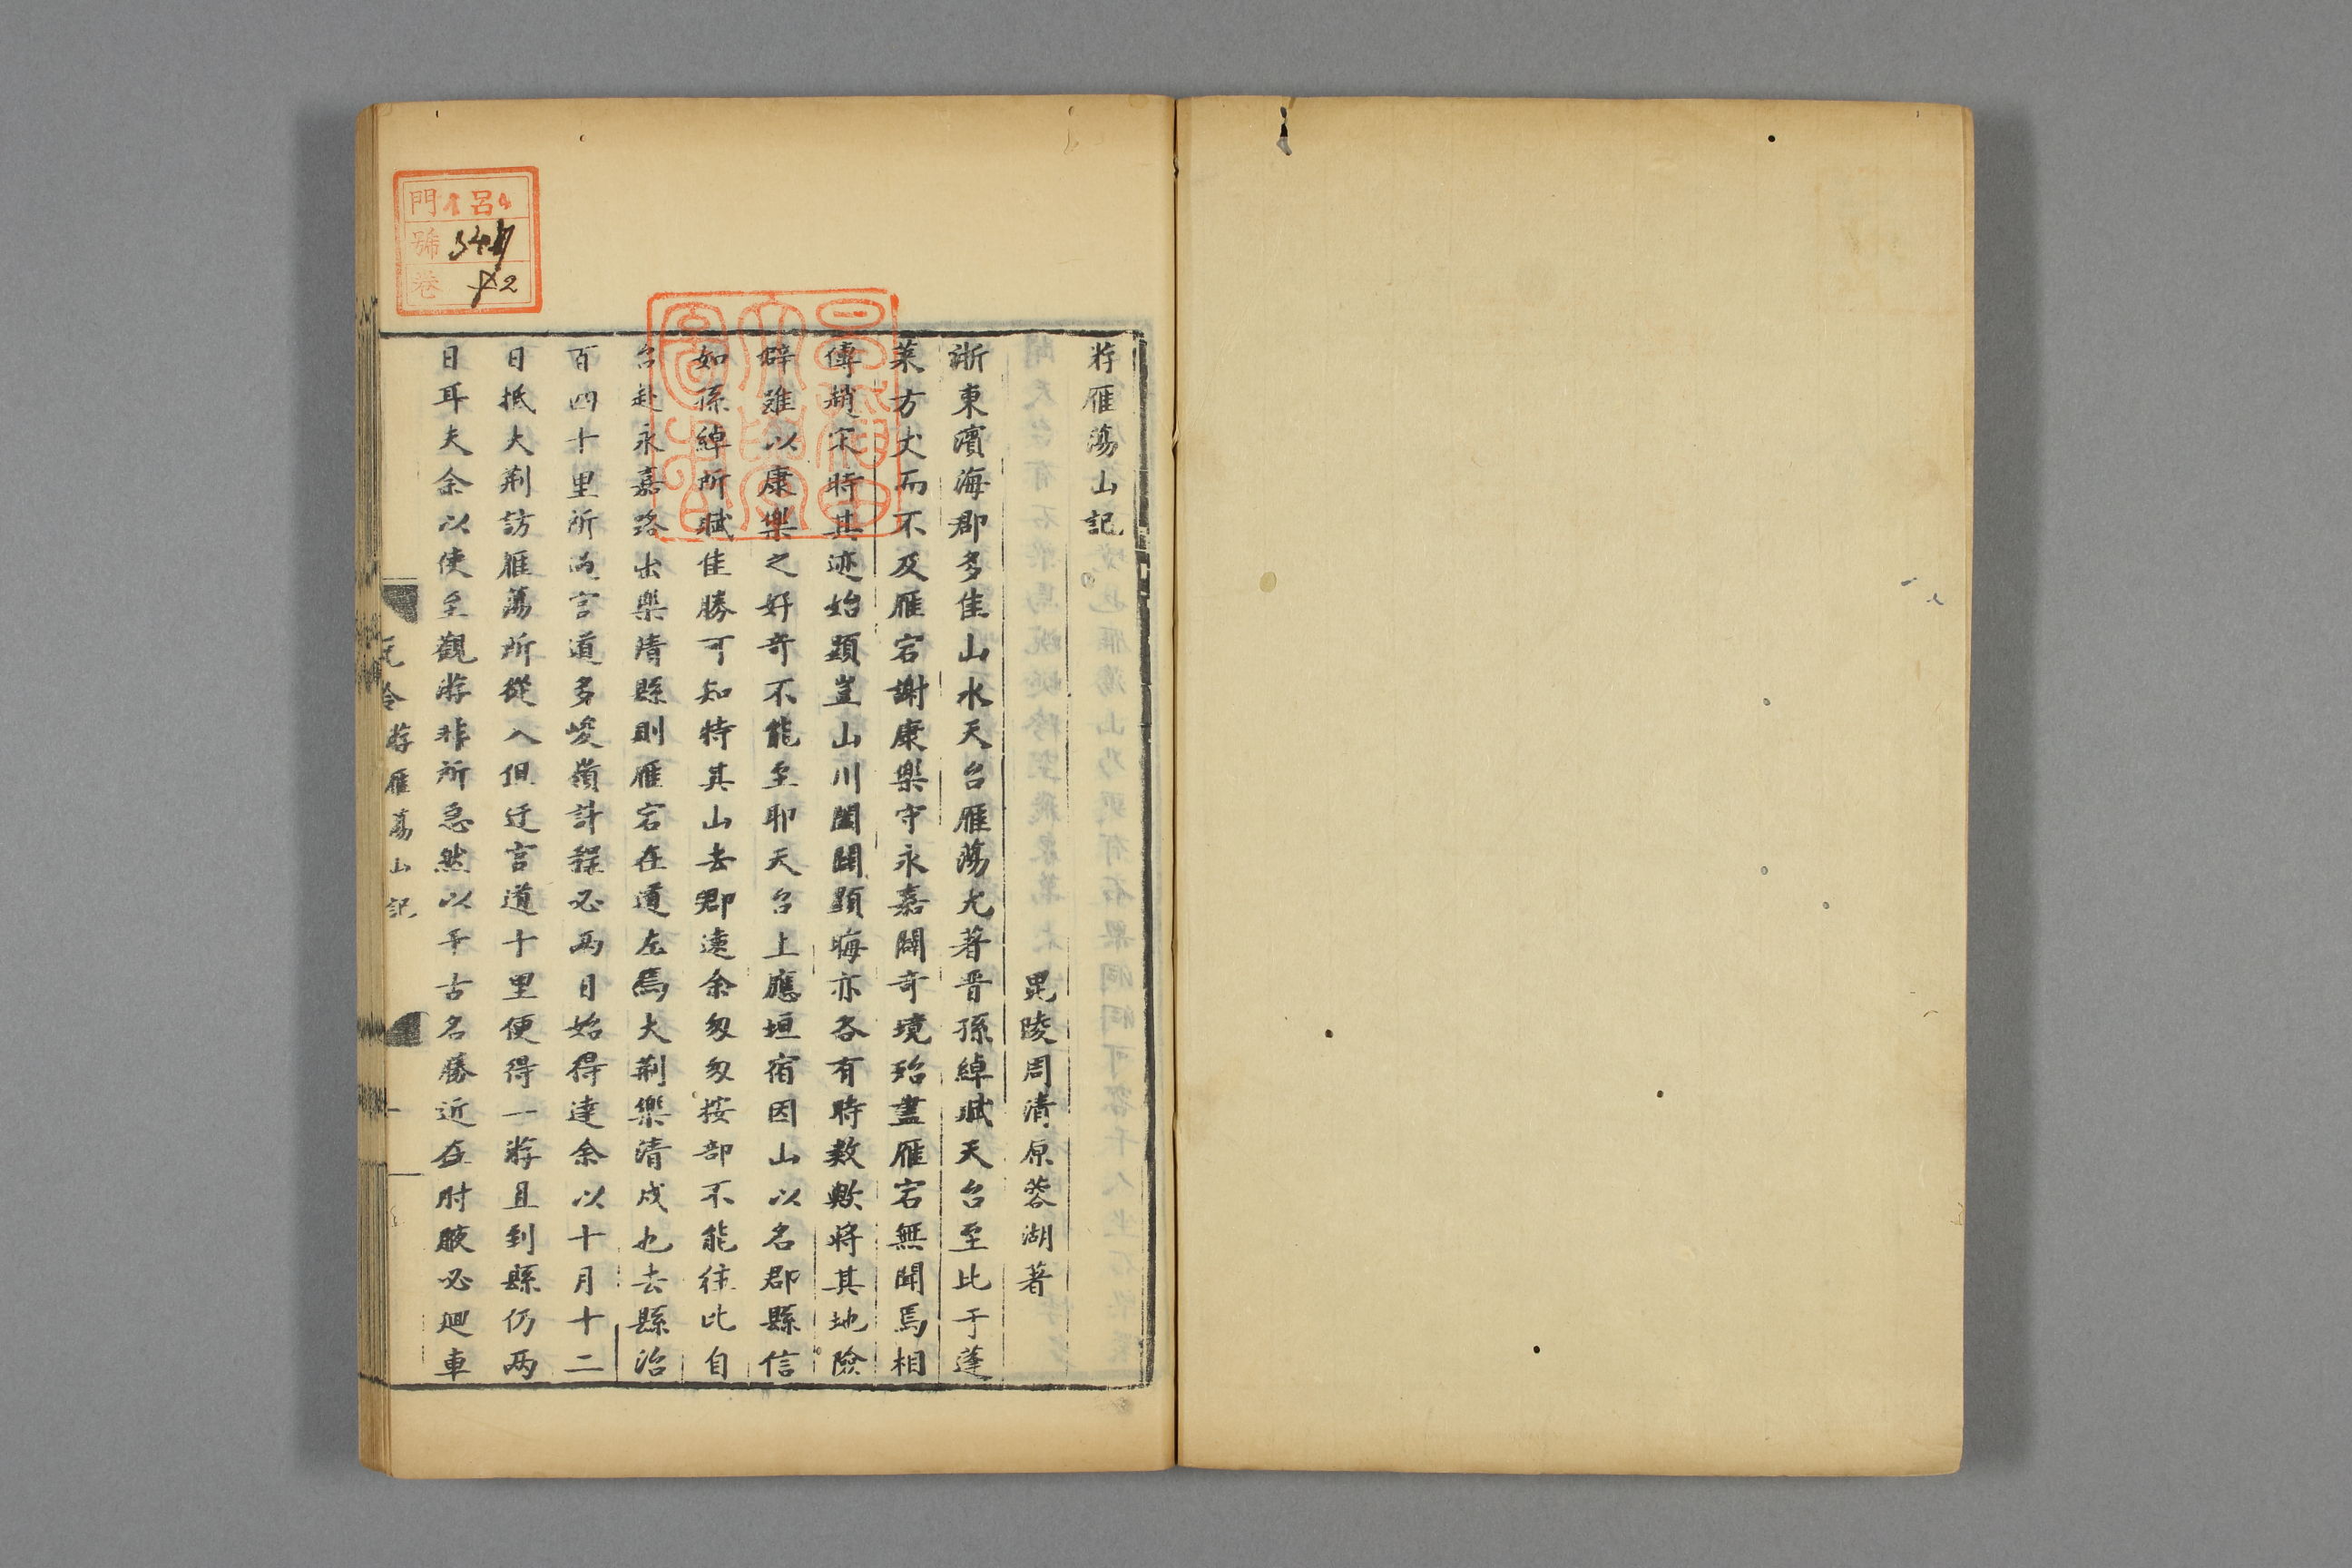 游雁蕩山記
毘陵周清原蓉湖著
浙東濱海郡多佳山水天台雁蕩尤著晋孫綽賦天台至比于蓬
萊方丈而不及雁宕謝康樂守永嘉闢奇境殆盡雁宕無聞焉相
傳趙宋時其迹始顯豈山川闔闢顯晦亦各有時數歟將其地險
僻雖以康樂之好奇不能至耶天台上應垣宿因山以名郡縣信
如孫綽所賦佳勝可知特其山去郡遠余匆匆按部不能往比自
台赴永嘉路出樂清縣則雁宕在道左焉大荆樂清戍也去縣治
百四十里所为言道多峻嶺計程必两日始得達余以十月十二
日抵大荆訪雁蕩所從入但迂言道十里便得一游且到縣仍两
日耳夫余以使至觀游非所急然以千古名勝近在肘腋必廻車
游雁蕩山記
一
門 呂
號
卷 2
昌平坂